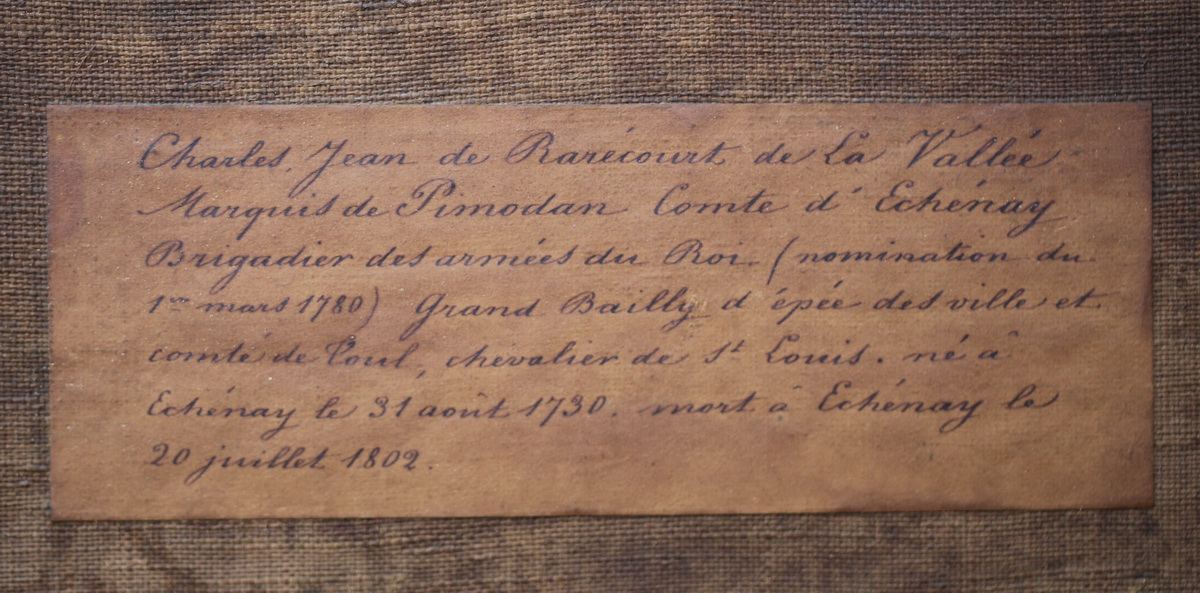 Charles Jean de Rarécourt de La Vallée
Marquis de Pimodan Comte d'Echénay
Brigadier des armées du Roi (nomination du
1er mars 1780) Grand Bailly d'épée des ville et
comté de Toul, chevalier de St Louis. né à
Echénay le 31 août 1730. mort à Echénay le
20 juillet 1802.